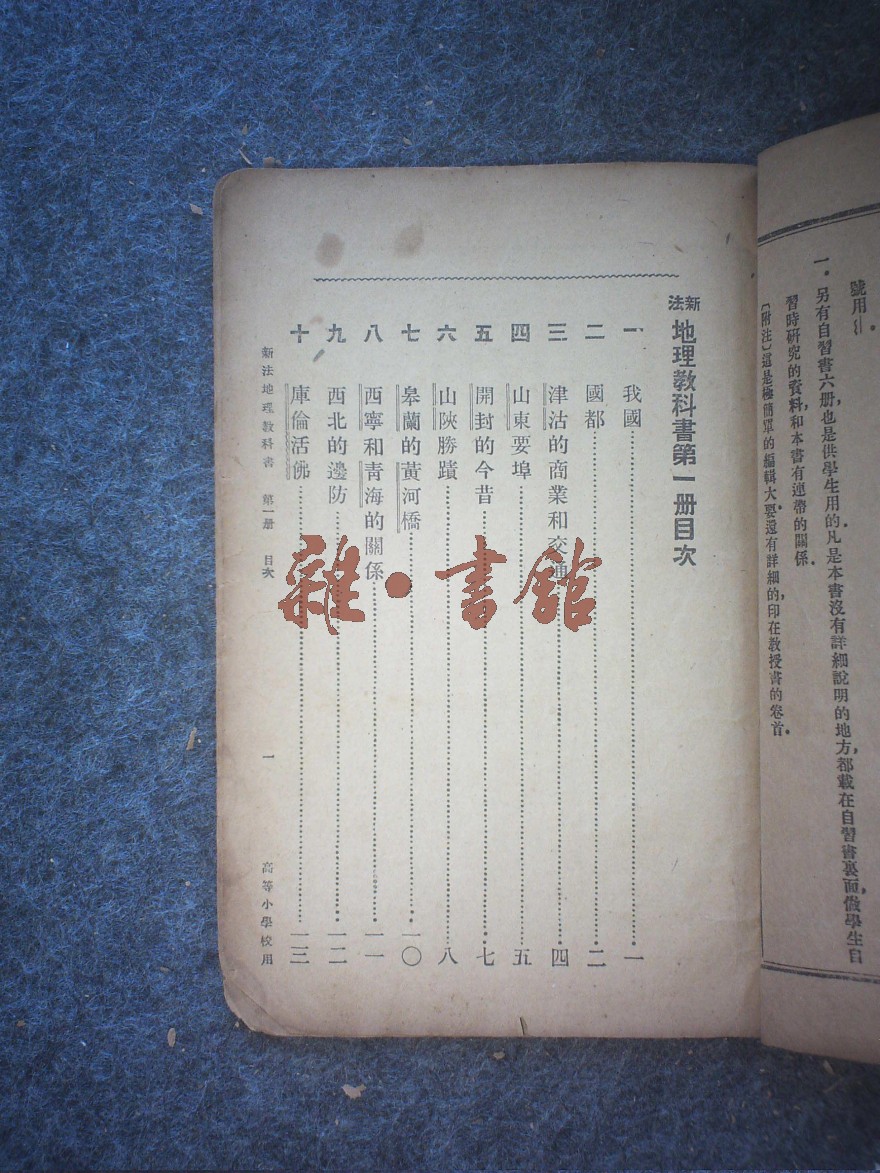 號用﹏。
一．另有自習書六册，也是供學生用的．凡是本書沒有詳細說明的地方，都載在自習書裏面，做學生自
習時研究的資料，和本書有連帶的關係．
〔附注〕這是極簡單的編輯大要，還有詳細的，印在教授書的卷首．
新法地理教科書第一册目次
一　我國……一
二　國都……二
三　津沽的商業和交通……四
四　山東要埠……五
五　開封的今昔……七
六　山陝勝蹟……八
七　皋蘭的黃河橋……一〇
八　西寧和青海的關係……一一
九　西北的邊防……一二
十　庫倫活佛……一三
新法地理教科書　第一册　目次　一　高等小學校用
雜·書館